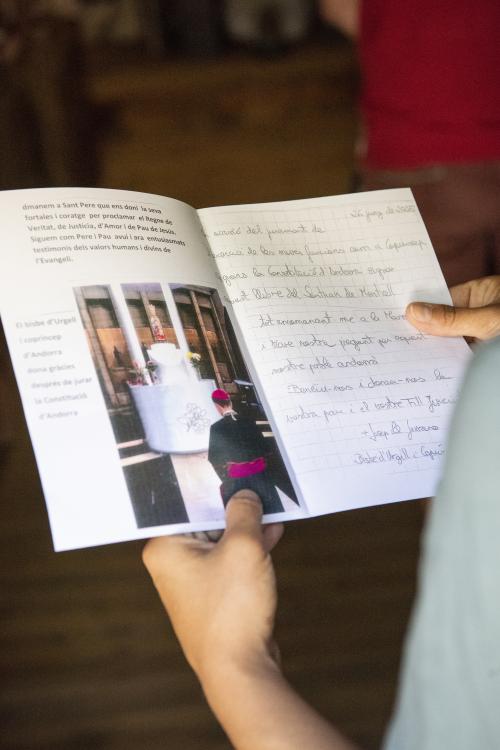 dmanem a Sant Pere que ens doni la seva
fortalesa i coratge per proclamar el Regne de
Veritat, de Justícia, d'Amor i de Pau de Jesús.
Siguem com Pere i Pau avui i ara entusiasmats
testimonis dels valors humans i divins de
l'Evangeli.
El bisbe d'Urgell
i copríncep
d'Andorra
dona gràcies
després de jurar
la Constitució
d'Andorra
juny de
ocasió del jurament de
de les meves funcions com a Copríncep
la Constitució d'Andorra signo
llibre del Santuari de Meritxell
tot encomanant me a la Mare
i Mare nostra pregant per aquest
nostre poble andorrà
Beneïu-nos i doneu-nos la
vostra pau i el vostre Fill
+Josep
Bisbe d'Urgell i